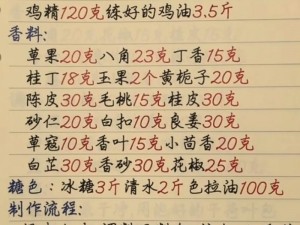 鸡精120克练好的鸡油3.5斤
香料:
草果20克八角23克丁香15克
桂丁18克玉果2个黄栀子20克
陈皮30克毛桃15克桂皮30克
砂仁20克白扣10克良姜30克
草寇10克香叶15克小茴香20克
白芷30克香砂30克花椒25克
糖色:冰糖3斤清水2斤色拉油100克
制作流程: